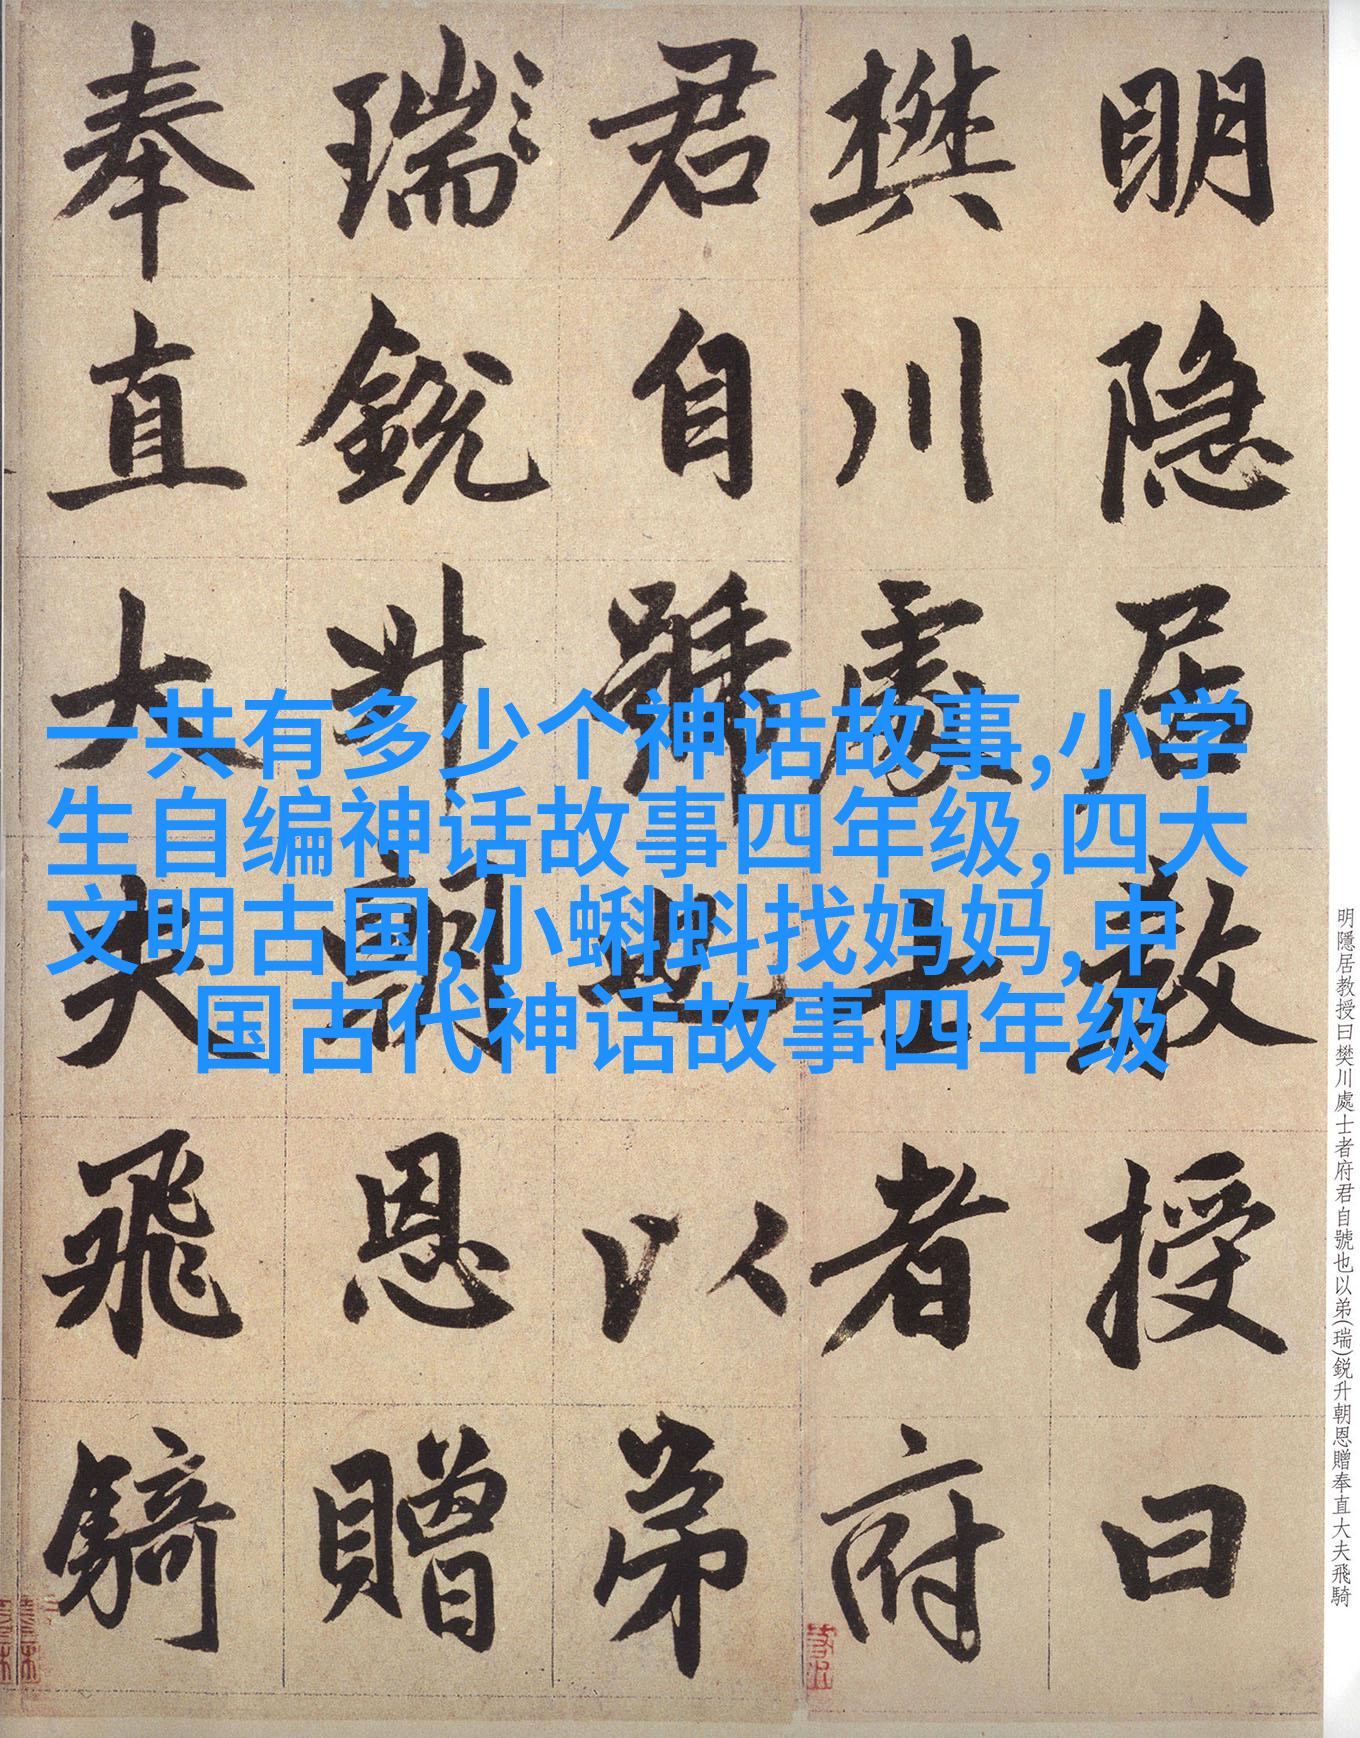 明隐居教授曰
樊川處士者府
君自號也以弟
瑞銳升朝恩贈
奉直大夫飛騎
一共有多少个神话故事,小学
生自编神话故事四年级,四大
文明古国,小蝌蚪找妈妈,中
国古代神话故事四年级
明隱居教授曰樊川處士者府君自號也以弟(瑞)鋭升朝恩贈奉直大夫飛騎